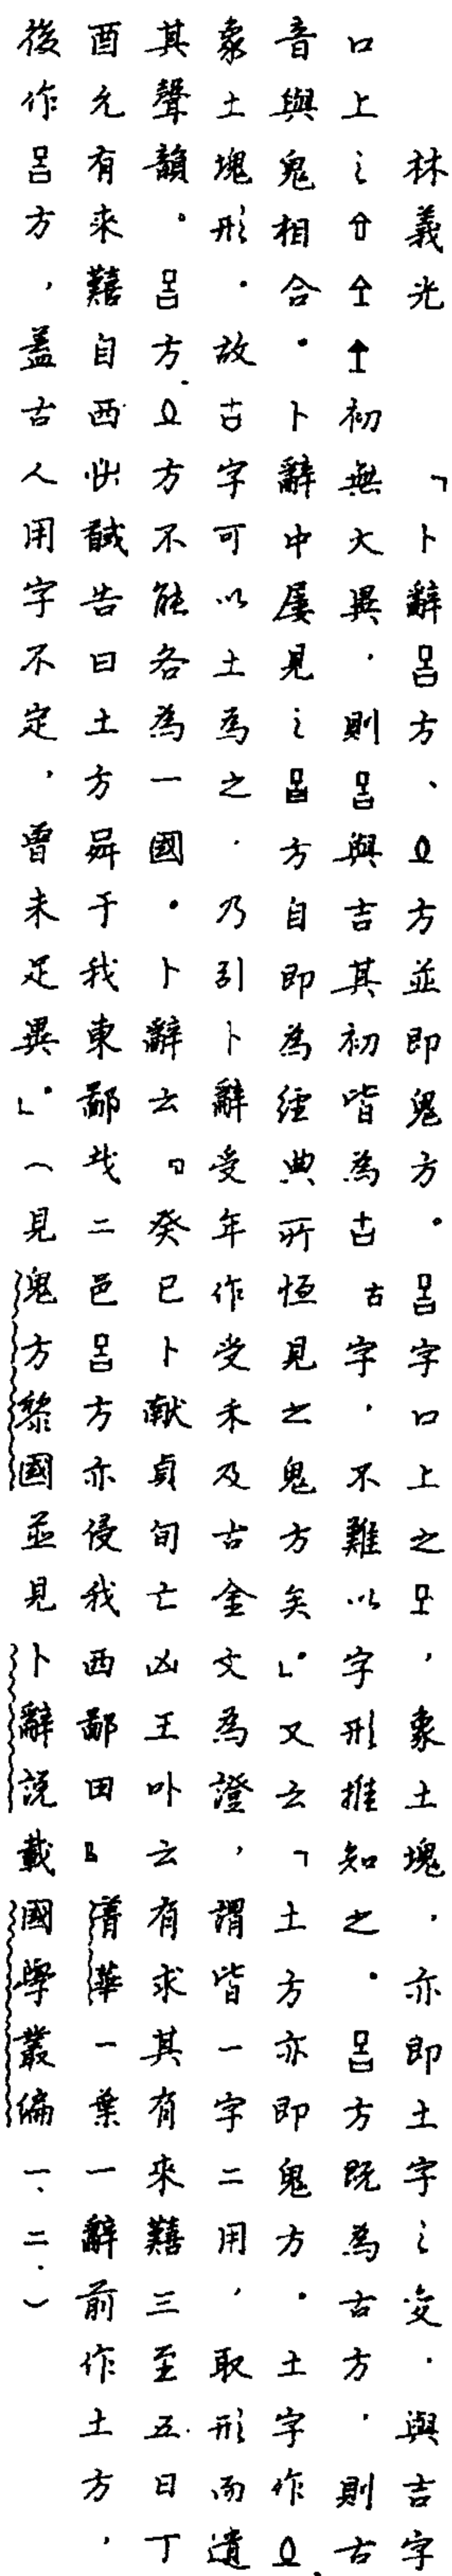 林義光「卜辭𢀛方、土方並即鬼方。𢀛字口上之，象土塊，亦即土字之変，與吉字
口上之初無大異，則𢀛與吉其初皆為古字，不難以字形推知之。𢀛方既為古方，則古
音與鬼相合。卜辭中屢見之𢀛方自即為經典所恒見之鬼方矣。」又云「土方亦即鬼方。土字作
象土塊形。故古字可以土為之，乃引卜辭受年作受禾及古金文為證，謂皆一字二用，取形而遺
其聲韻。𢀛方、土方不能各為一國。卜辭云『癸巳卜㱿貞旬亡凶王叶云有求其有來囏三至五日丁
酉允有來囏自西告曰土方于我東鄙𢦏二邑𢀛方亦侵我西鄙田』菁華一葉一辭前作土方，
後作𢀛方，蓋古人用字不定，曾未足異。」（見鬼方黎國並見卜辭說載國學叢編一、二、）